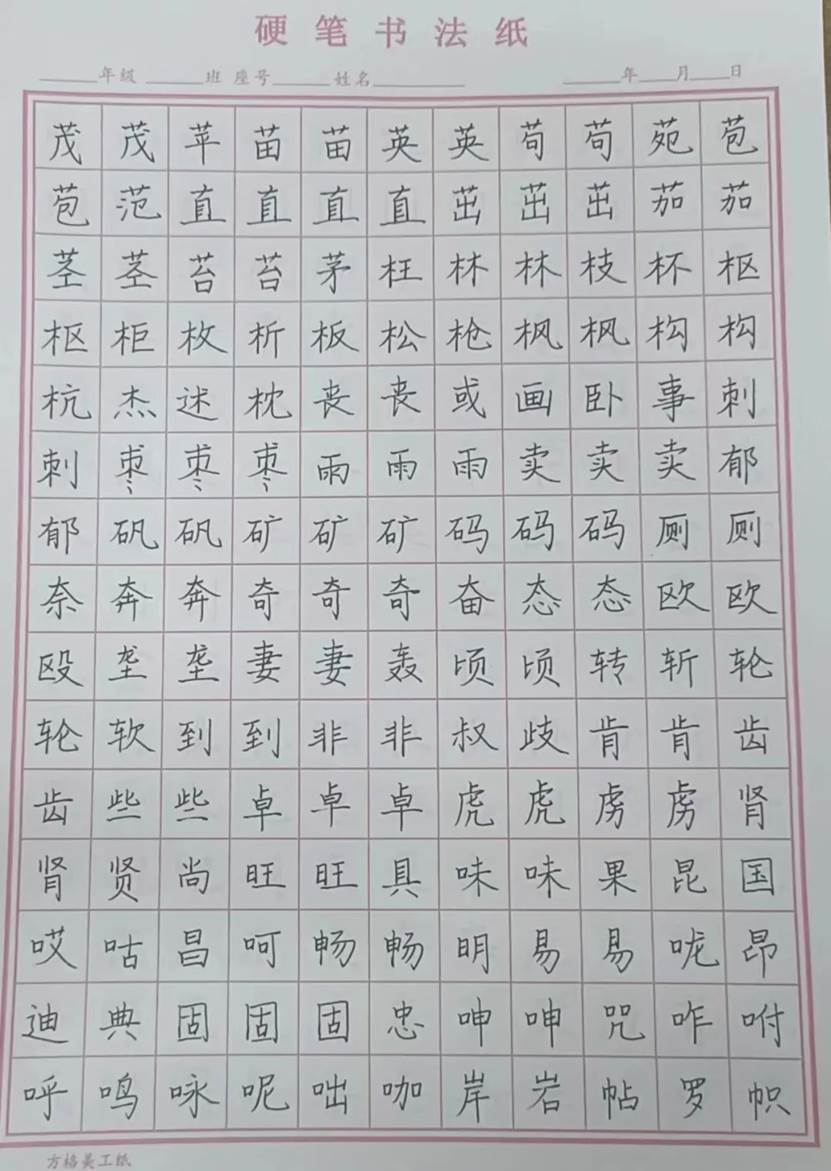 硬笔书法纸
年级 班 座号 姓名 年 月 日
茂茂苹苗苗英英苟苟苑苞
苞范直直直直茁茁茁茄茄
茎茎苔苔茅枉林林枝杯枢
枢柜枚析板松枪枫枫构构
杭杰迷枕丧丧或画卧事刺
刺枣枣枣雨雨雨卖卖卖郁
郁矾矾矿矿矿码码码厕厕
奈奔奔奇奇奇奋态态欧欧
殴垄垄妻妻轰顷顷转斩轮
轮软到到非非叔歧肯肯齿
齿些些卓卓卓虎虎虏虏肾
肾贤尚旺旺具味味果昆国
哎咕昌呵畅畅明易易咙昂
迪典固固固忠呻呻咒咋咐
呼鸣咏呢咄咖岸岩帖罗帜
方格美工纸